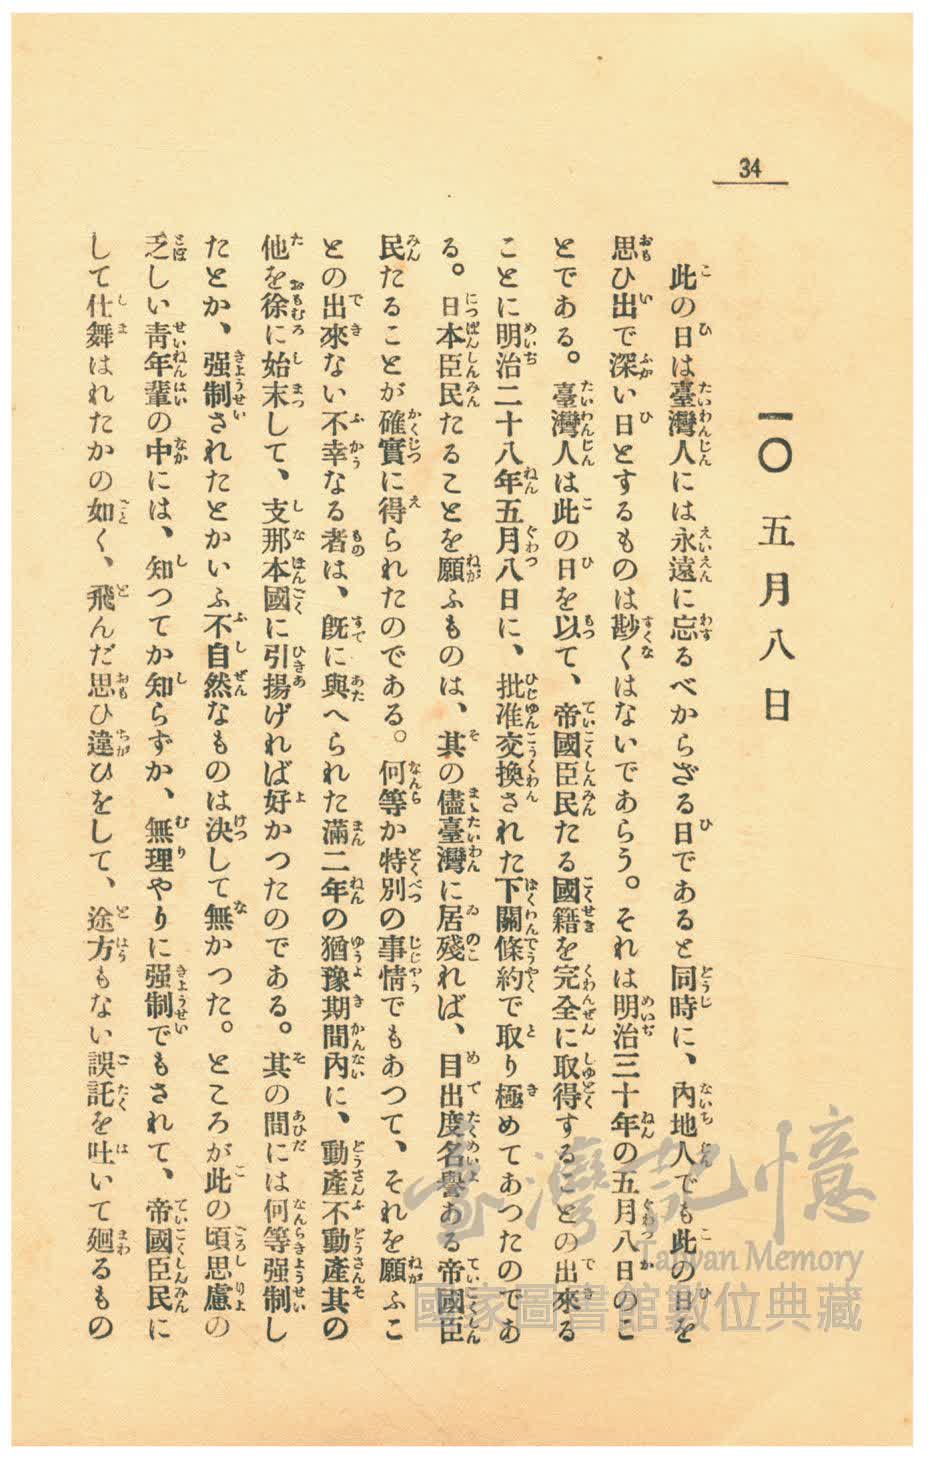 34
一〇 五月八日
此の日は臺灣人には永遠に忘るべからざる日であると同時に、內地人でも此の日を
思ひ出で深い日とするものは尠くはないであらう。それは明治三十年の五月八日のこ
とである。臺灣人は此の日を以て、帝國臣民たる國籍を完全に取得することの出來る
ことに明治二十八年五月八日に、批准交換された下關條約で取り極めてあつたのであ
る。日本臣民たることを願ふものは、其の儘臺灣に居殘れば、目出度名譽ある帝國臣
民たることが確實に得られたのである。何等か特別の事情でもあつて、それを願ふこ
との出來ない不幸なる者は、既に與へられた滿二年の猶豫期間內に、動產不動產其の
他を徐に始末して、支那本國に引揚げれば好かつたのである。其の間には何等强制し
たとか、强制されたとかいふ不自然なものは決して無かつた。ところが此の頃思慮の
乏しい靑年輩の中には、知つてか知らずか、無理やりに强制でもされて、帝國臣民に
して仕舞はれたかの如く、飛んだ思ひ違ひをして、途方もない誤託を吐いて廻るもの
臺灣記憶
Taiwan Memory
國家圖書館數位典藏